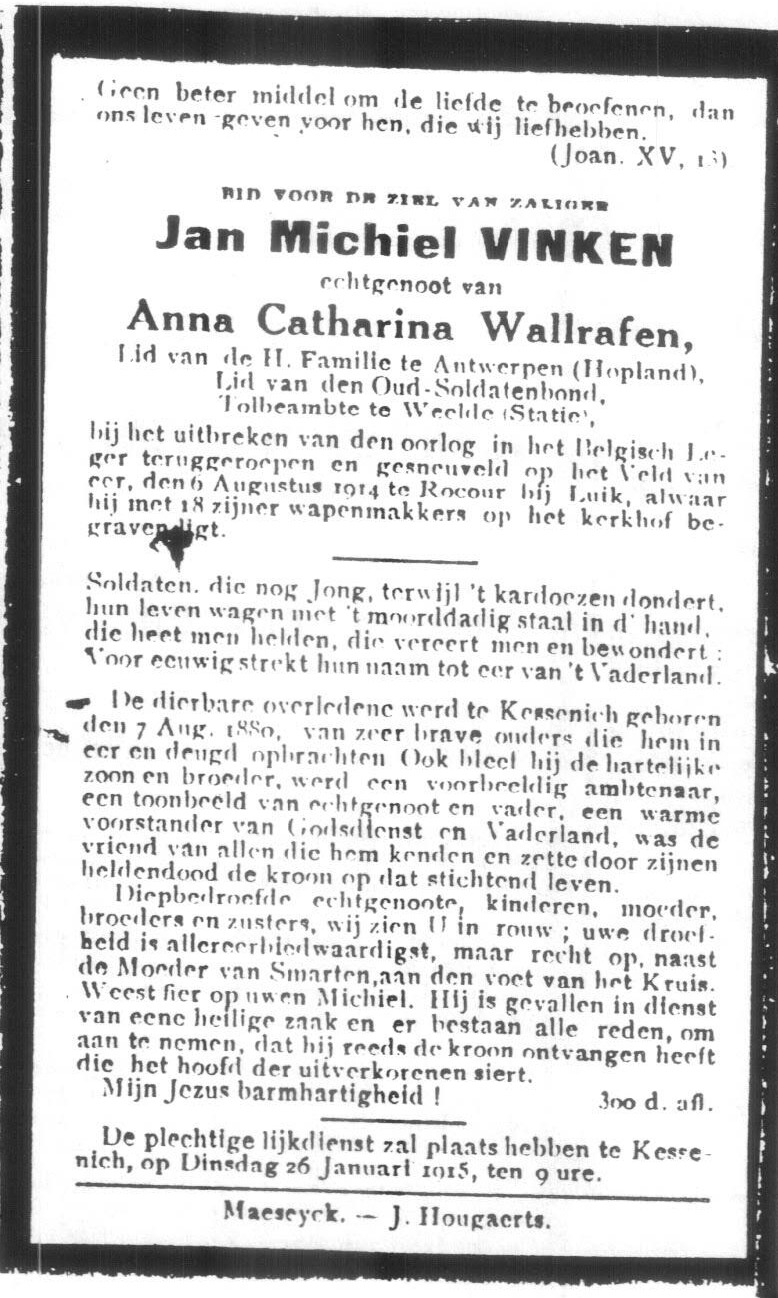 Geen beter middel om de liefde te beoefenen, dan
ons leven geven voor hen, die wij liefhebben.
(Joan. XV, 13)
BID VOOR DE ZIEL VAN ZALIGER
Jan Michiel VINKEN
echtgenoot van
Anna Catharina Wallrafen,
Lid van de H. Familie te Antwerpen (Hopland),
Lid van den Oud-Soldatenbond,
Tolbeambte te Weelde (Statie),
bij het uitbreken van den oorlog in het Belgisch Le-
ger teruggeroepen en gesneuveld op het Veld van
eer, den 6 Augustus 1914 te Rocour bij Luik, alwaar
hij met 18 zijner wapenmakkers op het kerkhof be-
graven ligt.
Soldaten, die nog Jong, terwijl 't kardoezen dondert,
hun leven wagen met 't moorddadig staal in d' hand,
die heet men helden, die vereert men en bewondert :
Voor eeuwig strekt hun naam tot eer van 't Vaderland.
De dierbare overledene werd te Kessenich geboren
den 7 Aug. 1880, van zeer brave ouders die hem in
eer en deugd opbrachten Ook bleef hij de hartelijke
zoon en broeder, werd een voorbeeldig ambtenaar,
een toonbeeld van echtgenoot en vader, een warme
voorstander van Godsdienst en Vaderland, was de
vriend van allen die hem kenden en zette door zijnen
heldendood de kroon op dat stichtend leven.
Diepbedroefde echtgenoote, kinderen, moeder,
broeders en zusters, wij zien U in rouw ; uwe droef-
heid is allereerbiedwaardigst, maar recht op, naast
de Moeder van Smarten, aan den voet van het Kruis.
Weest fier op uwen Michiel. Hij is gevallen in dienst
van eene heilige zaak en er bestaan alle reden, om
aan te nemen, dat hij reeds de kroon ontvangen heeft
die het hoofd der uitverkorenen siert.
Mijn Jezus barmhartigheid ! 300 d. afl.
De plechtige lijkdienst zal plaats hebben te Kesse-
nich, op Dinsdag 26 Januari 1915, ten 9 ure.
Maeseyck. — J. Hougaerts.